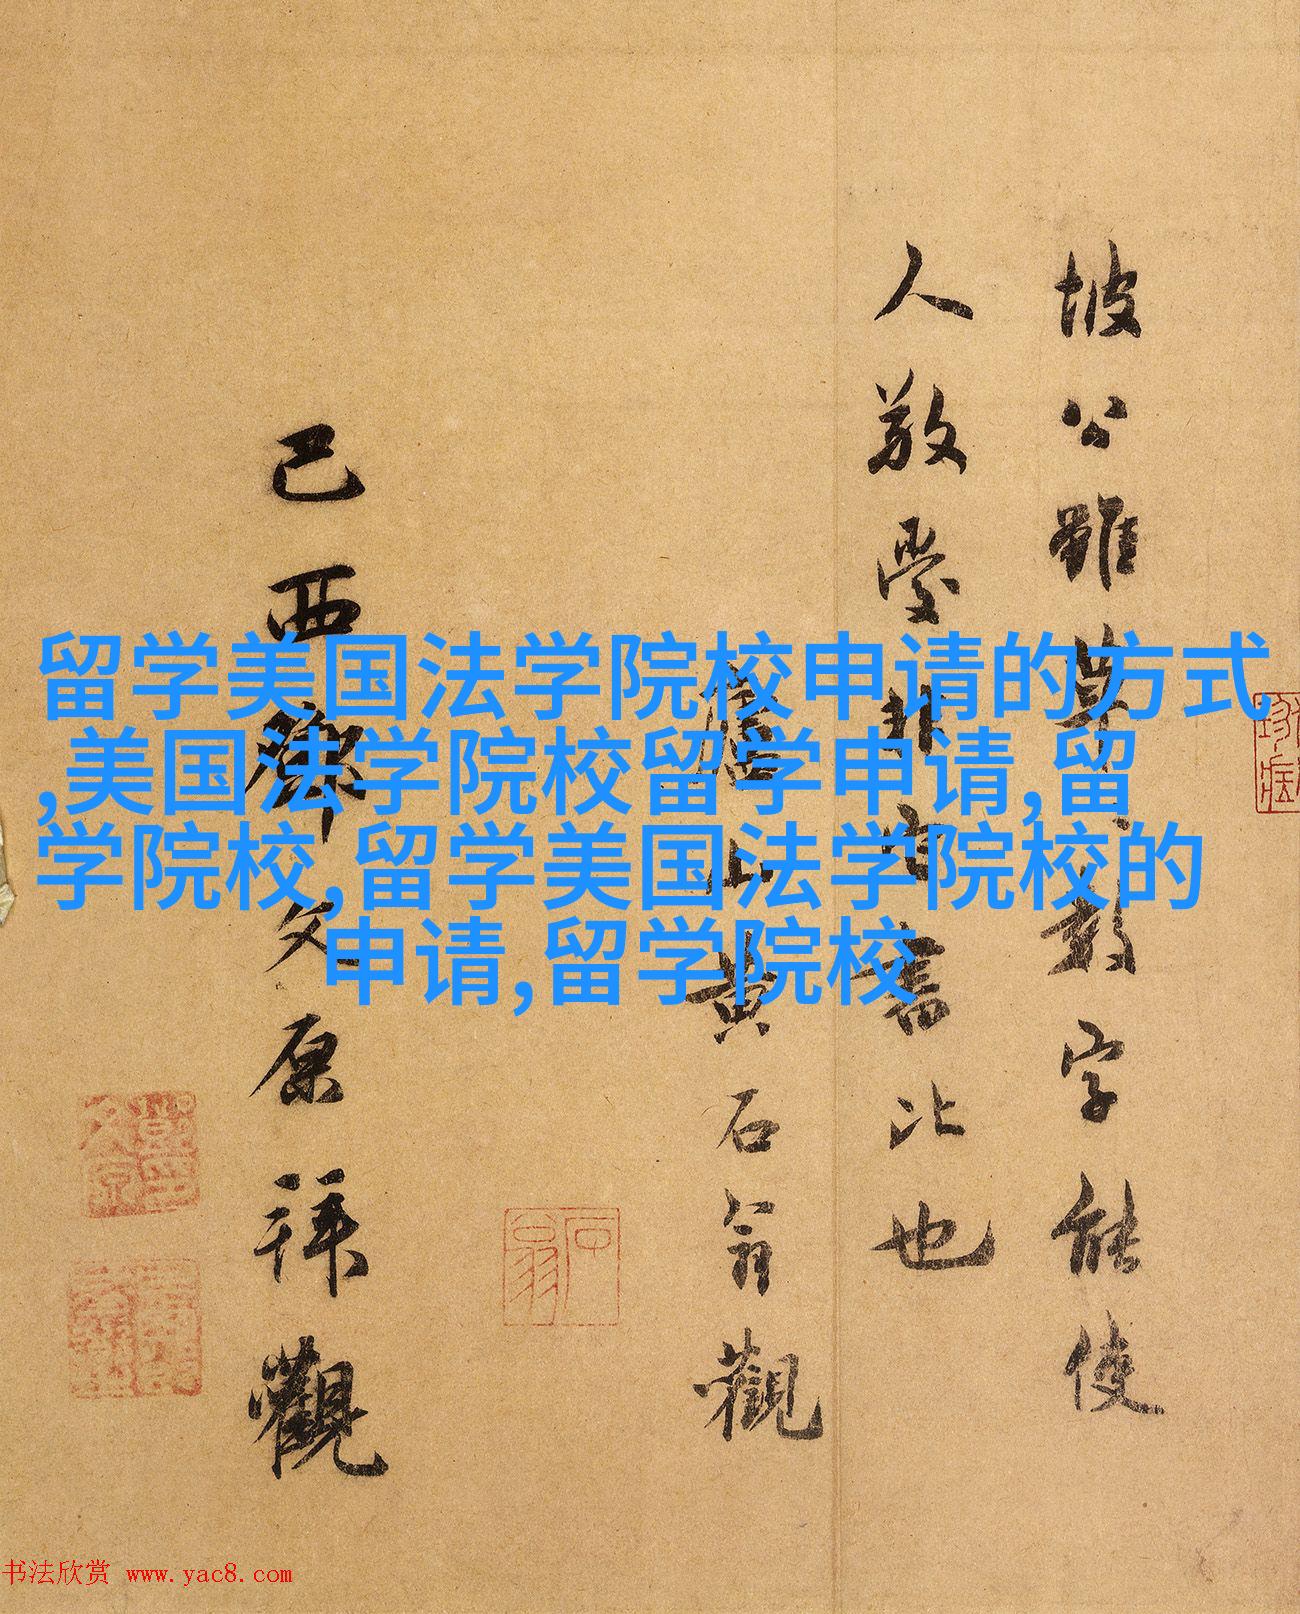 坡公雖草〻數字能使
人敬愛非它書比也
廬山黄石翁觀
石翁
己酉鄧文原拜觀
留学美国法学院校申请的方式
,美国法学院校留学申请,留
学院校,留学美国法学院校的
申请,留学院校
书法欣赏 www.yac8.com